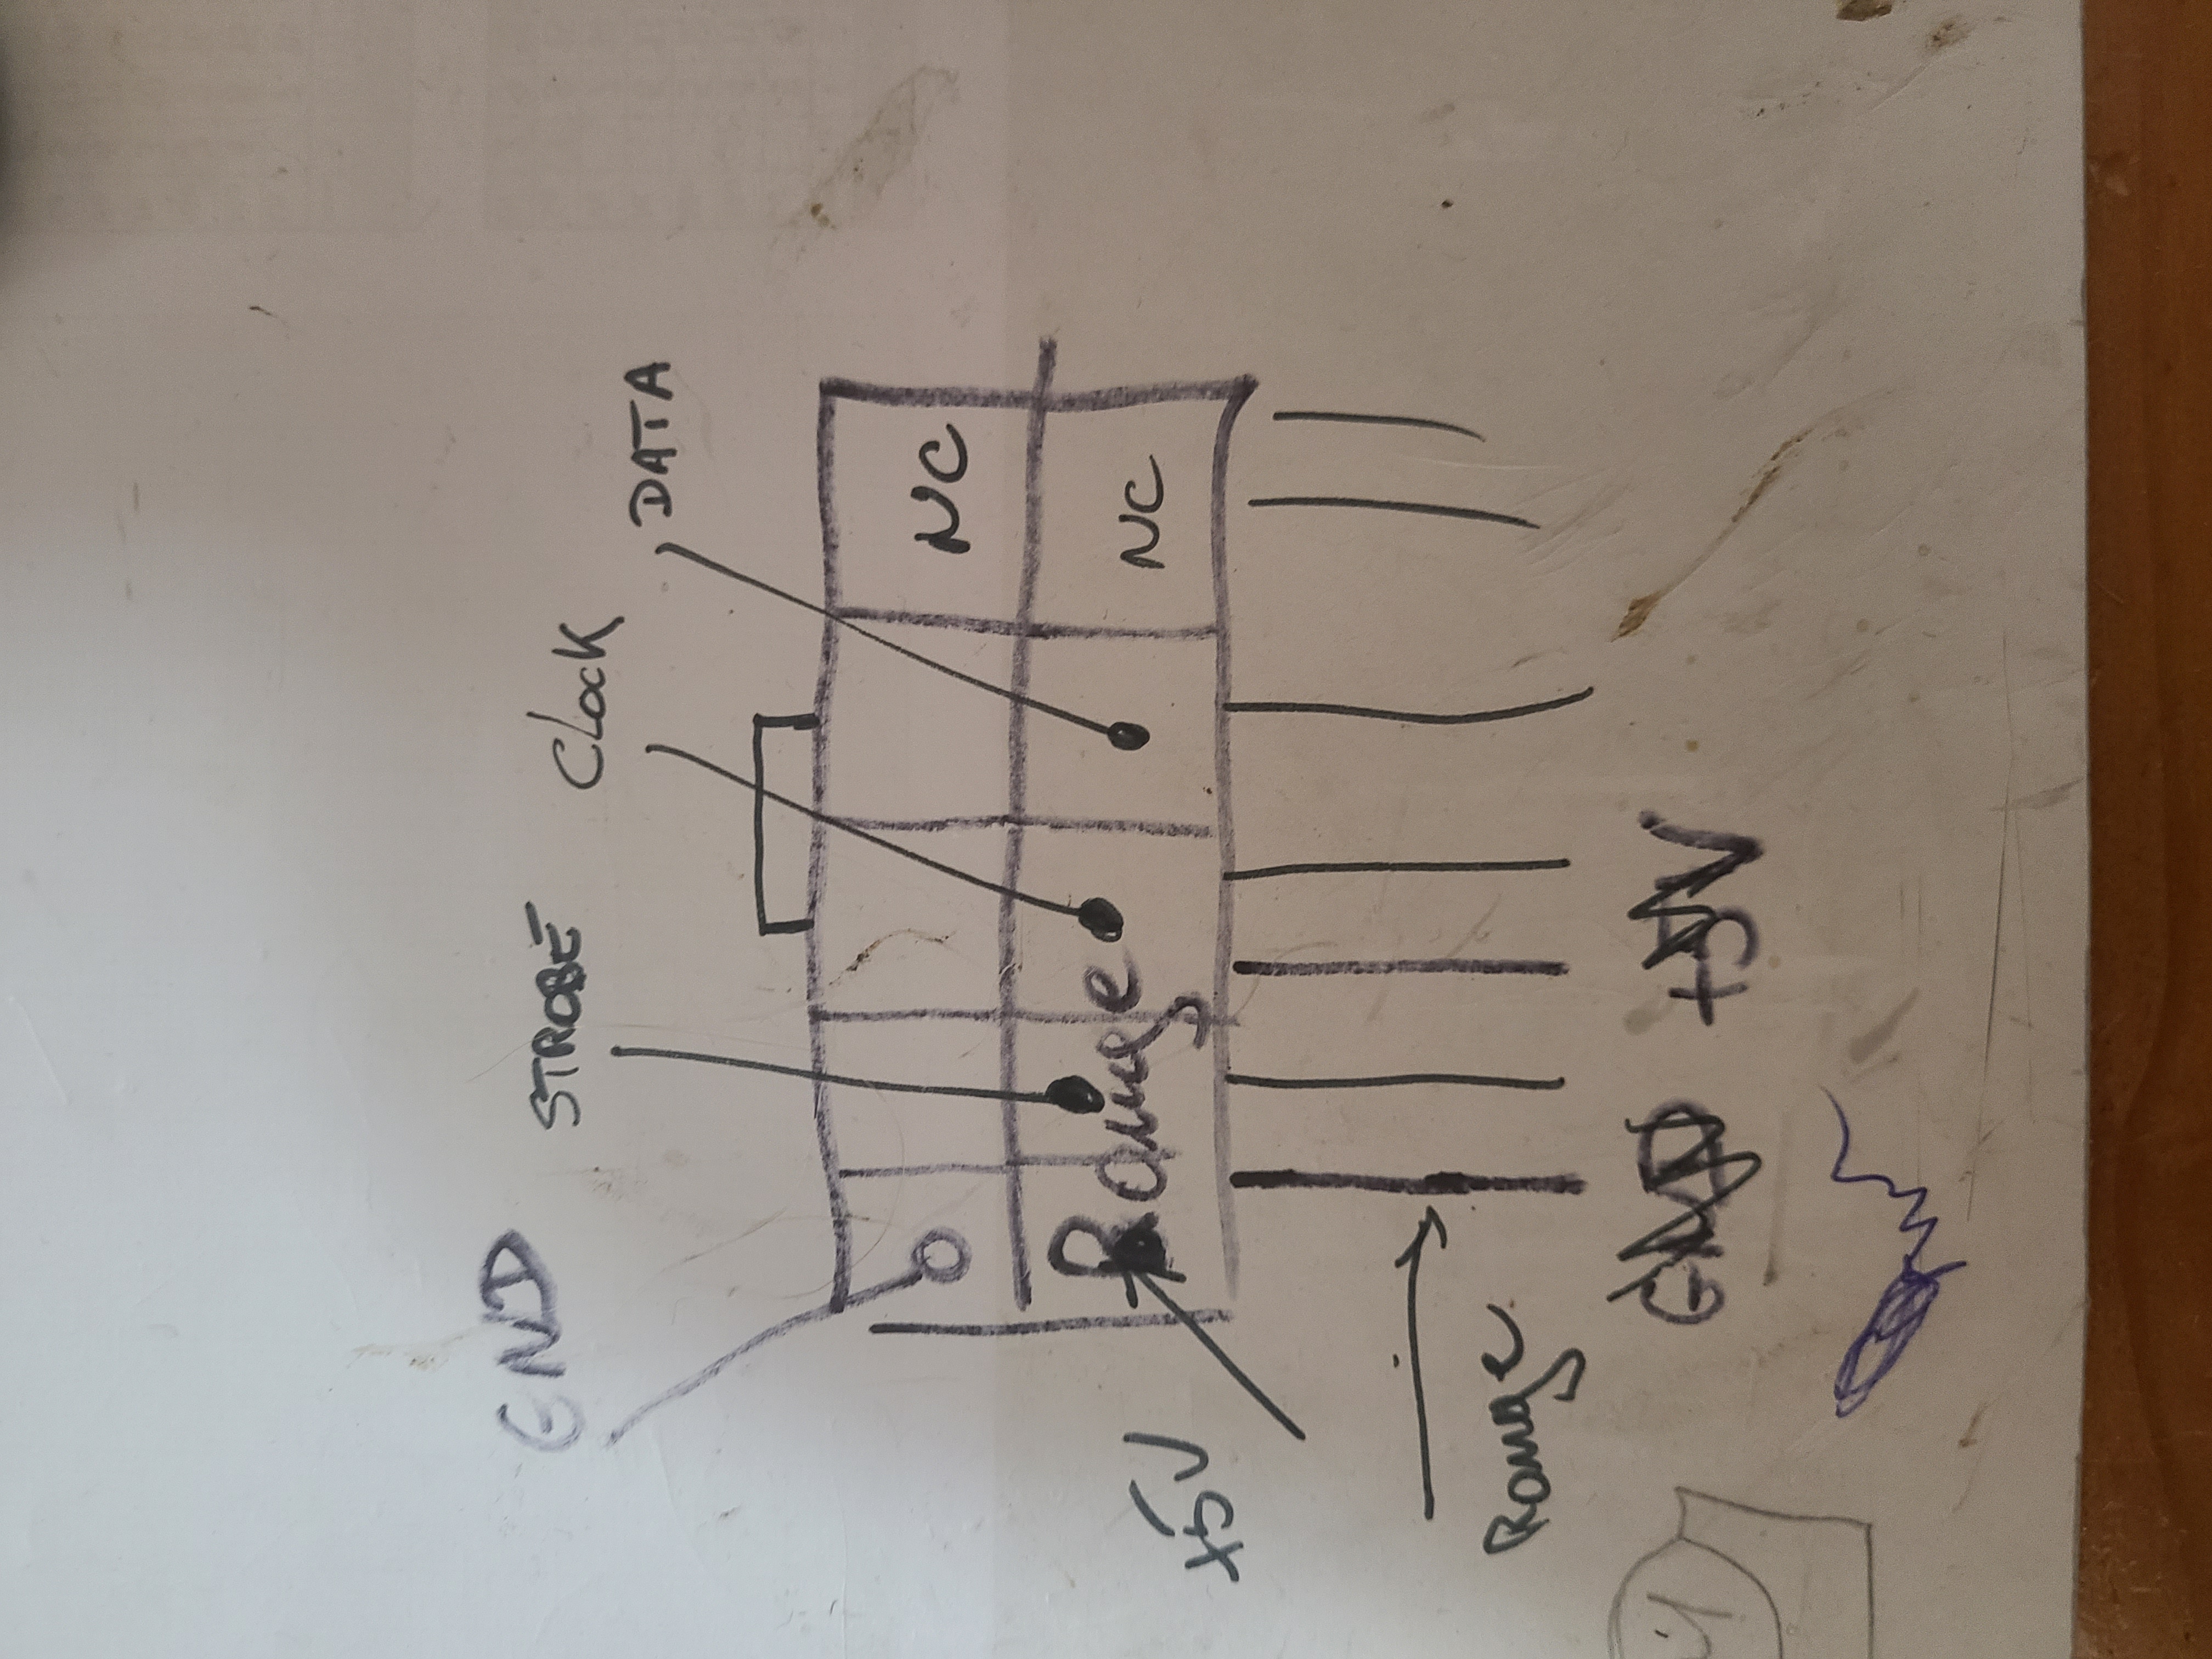 GND
STROBE
Clock
DATA
NC
Range
NC
+5V
Range
GND +5V